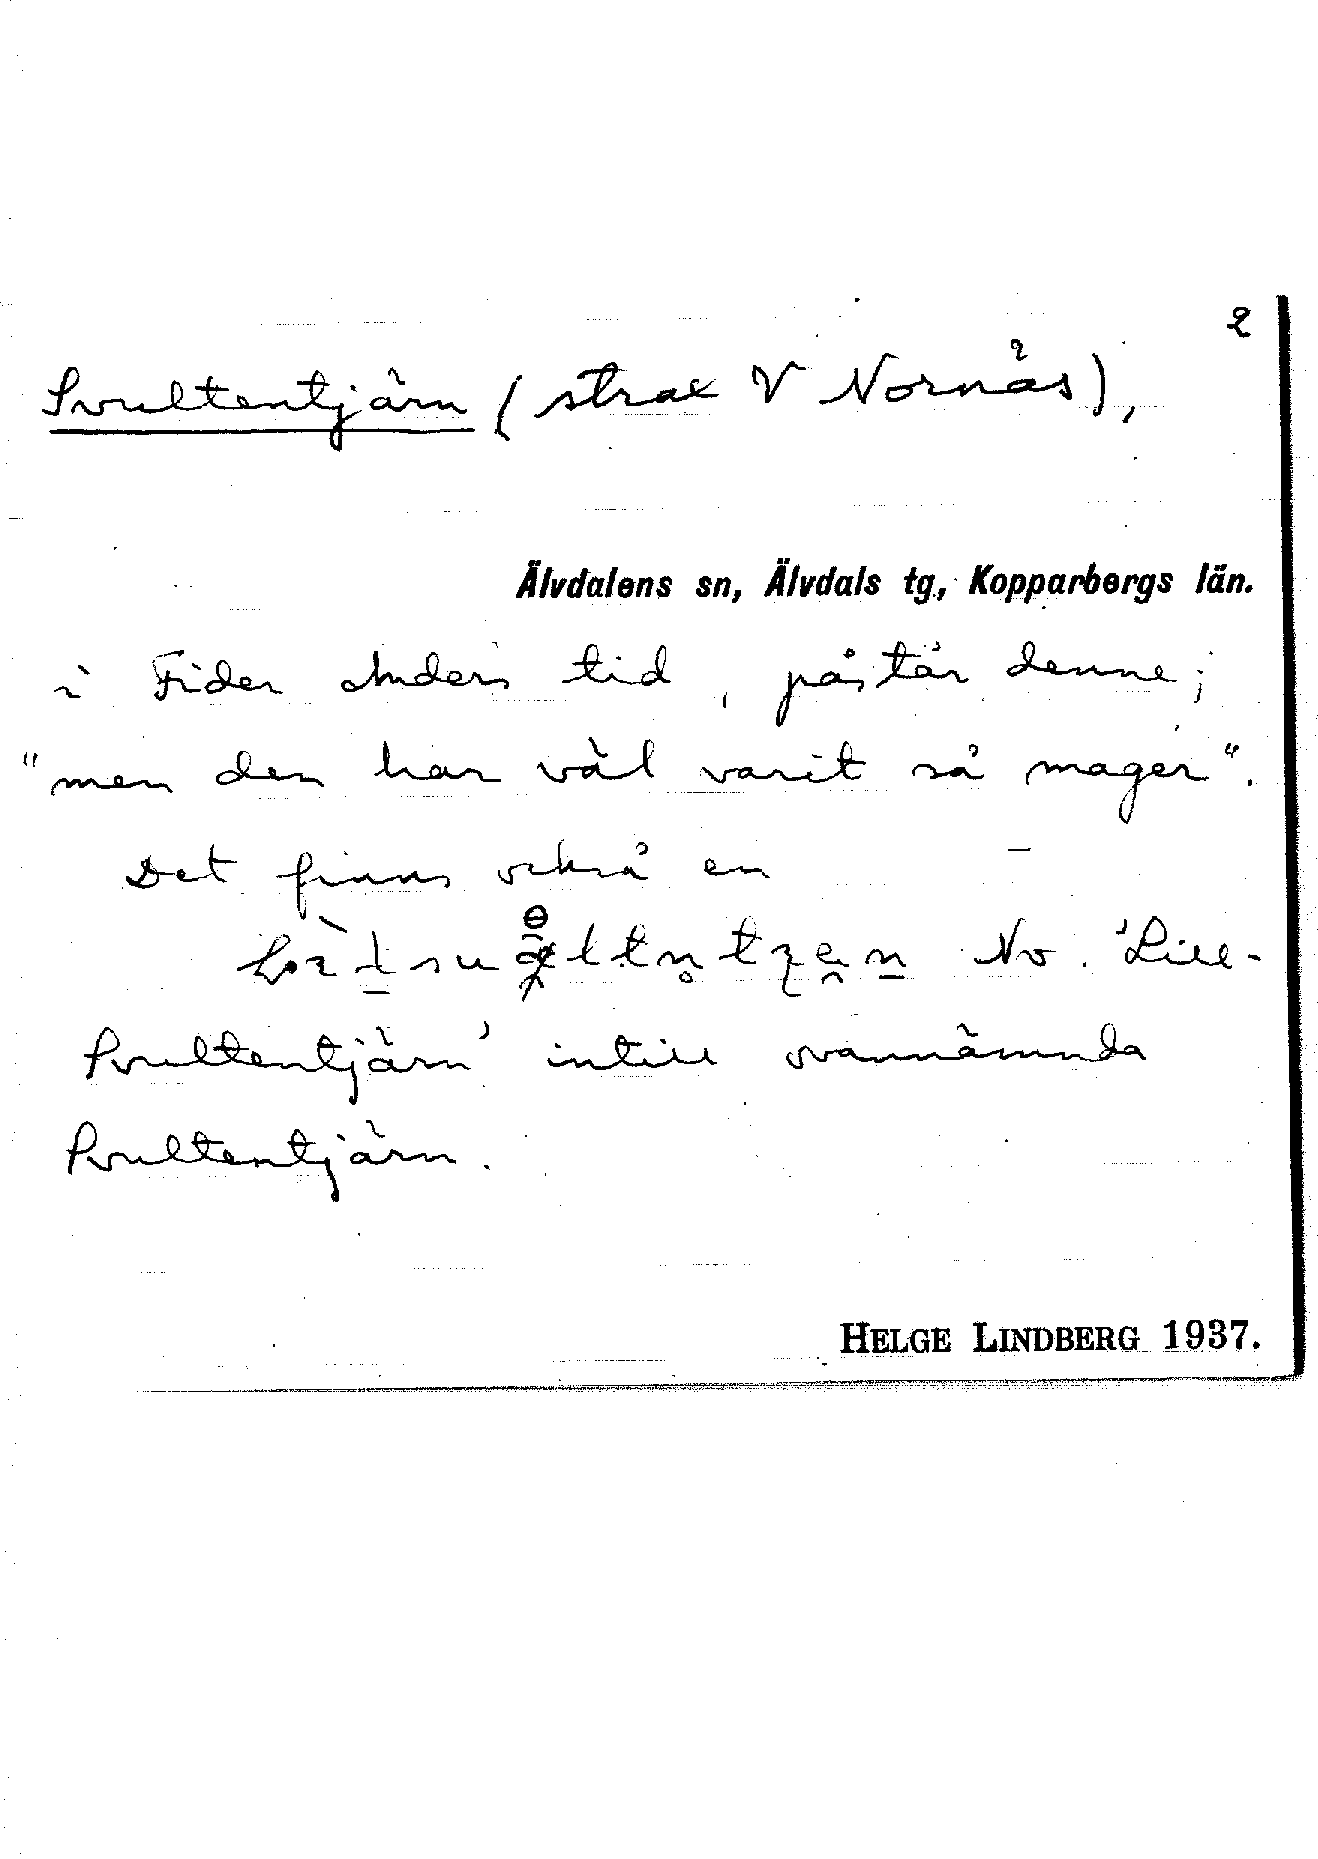 2
Svultentjärn (strax V Nornäs),
Älvdalens sn, Älvdals tg, Kopparbergs län.
i Fider Anders tid, påstår denne;
"men den har väl varit så mager".
Det finns också en
No. 'Lill-
Svultentjärn' intill ovannämnda
Svultentjärn.
HELGE LINDBERG 1937.